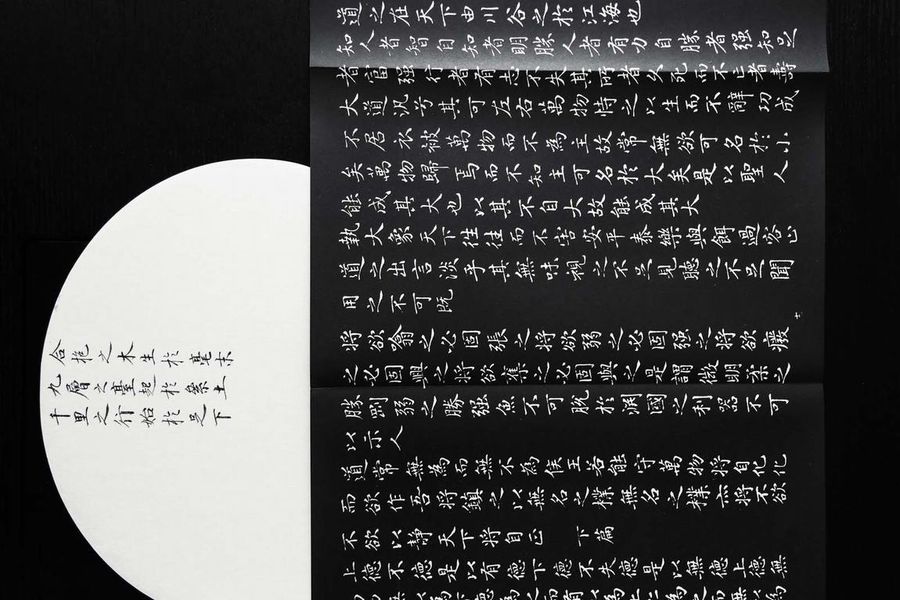 合抱之木生於毫末
九層之臺起於累土
千里之行始於足下
道之在天下由川谷之於江海也
知人者智自知者明勝人者有力自勝者强知足
者富强行者有志不失其所者久死而不亡者壽
大道汎兮其可左右萬物恃之以生而不辭功成
不居衣被萬物而不為主故常無欲可名於小
矣萬物歸焉而不知主可名於大矣是以聖人
能成其大也以其不自大故能成其大
執大象天下往往而不害安平泰樂與餌過客止
道之出言淡乎其無味視之不足見聽之不足聞
用之不可既
將欲噏之必固張之將欲弱之必固强之將欲廢
之必固興之將欲奪之必固與之是謂微明柔之
勝剛弱之勝强魚不可脫於淵國之利器不可
以示人
道常無為而無不為侯王若能守萬物將自化化
而欲作吾將鎮之以無名之樸無名之樸亦將不欲
不欲以靜天下將自正 下篇
上德不德是以有德下德不失德是以無德上德無